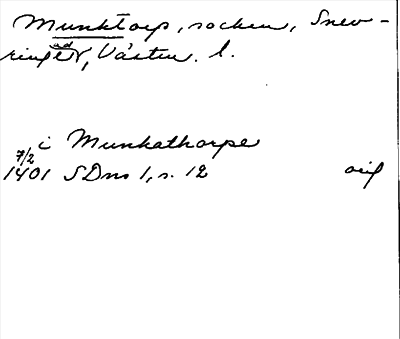 Munktorp, socken, Snev-
ringe hd, Västm. l.
i Munkathorpe
7/2
1401 SDns 1, s. 12 orig